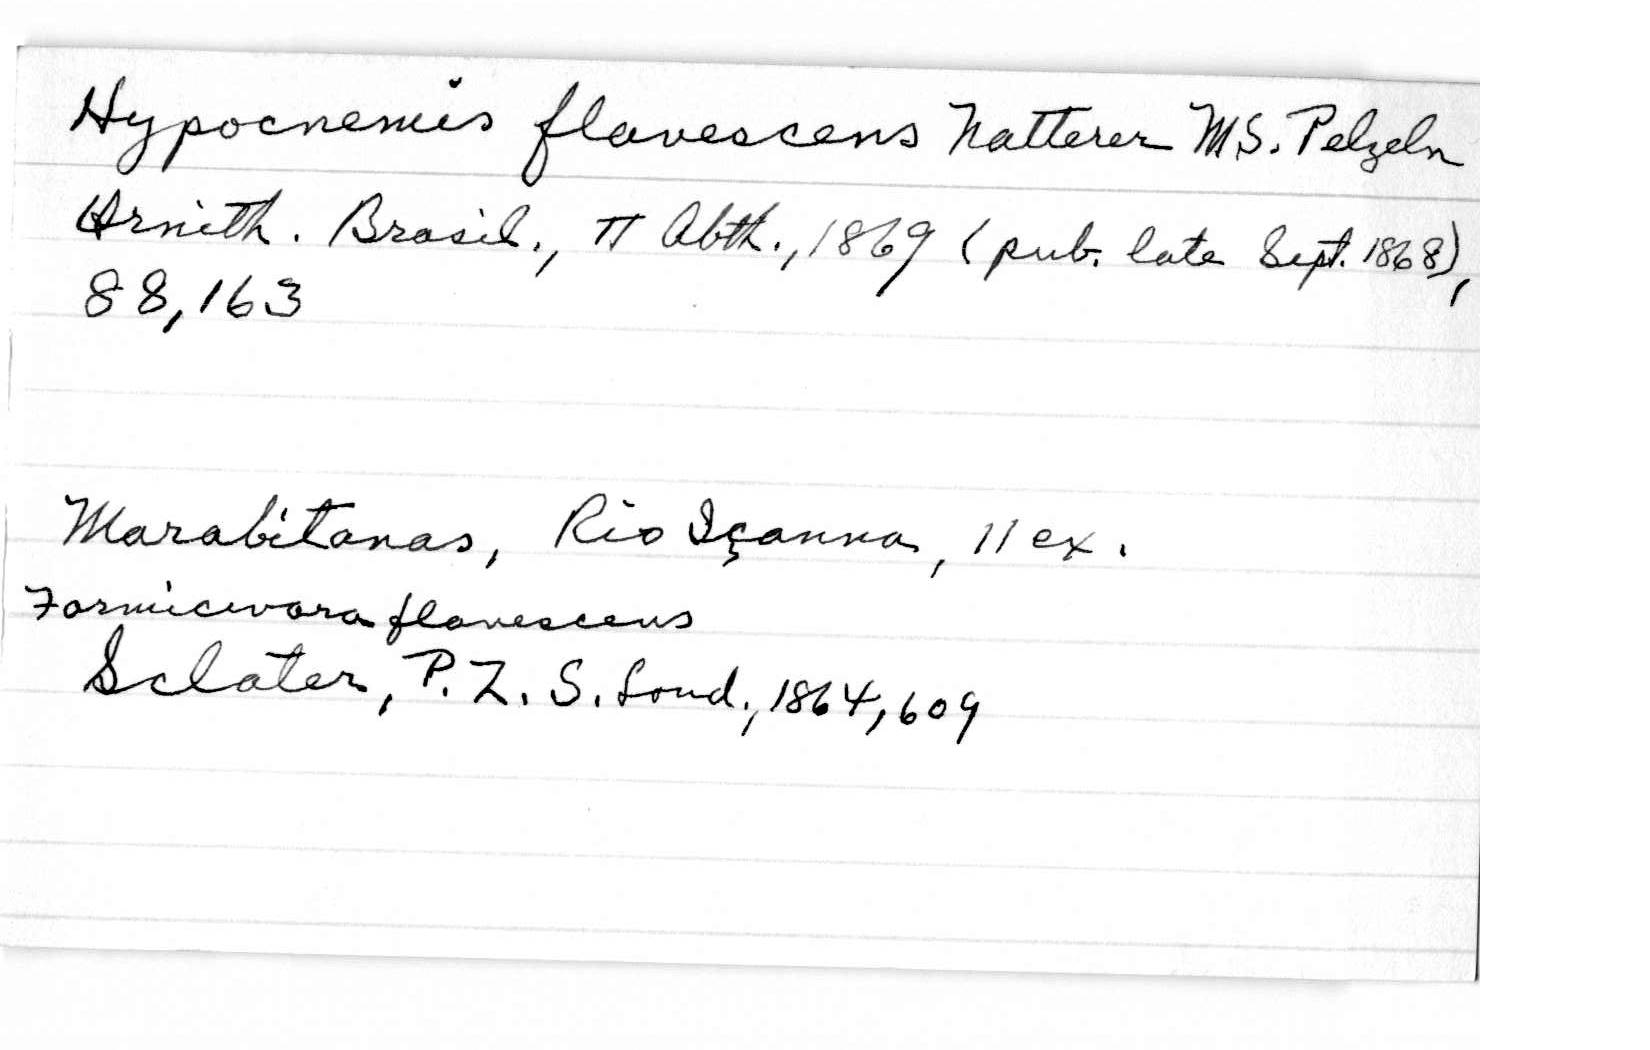 Hypocnemis flavescens Natterer MS. Pelzeln
Ornith. Brasil., II Abth., 1869 (pub. late Sept. 1868),
88, 163
Marabitanas, Rio Içanna, 11 ex.
Formicivora flavescens
Sclater, P. Z. S. Lond., 1864, 609